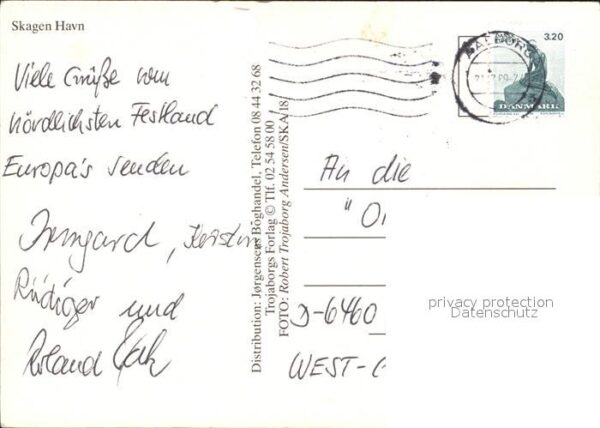 Skagen Havn
Viele Grüße vom
nördlichsten Festland
Europa's senden
Irmgard, Kerstin
Rüdiger und
Roland
Distribution: Jørgensens Boghandel, Telefon 08 44 32 68
Trojaborgs Forlag © Tlf. 02 54 58 00
FOTO: Robert Trojaborg Andersen/SKA/18
3.20
AALBORG
DANMARK
An die
D-6460
WEST-
privacy protection
Datenschutz